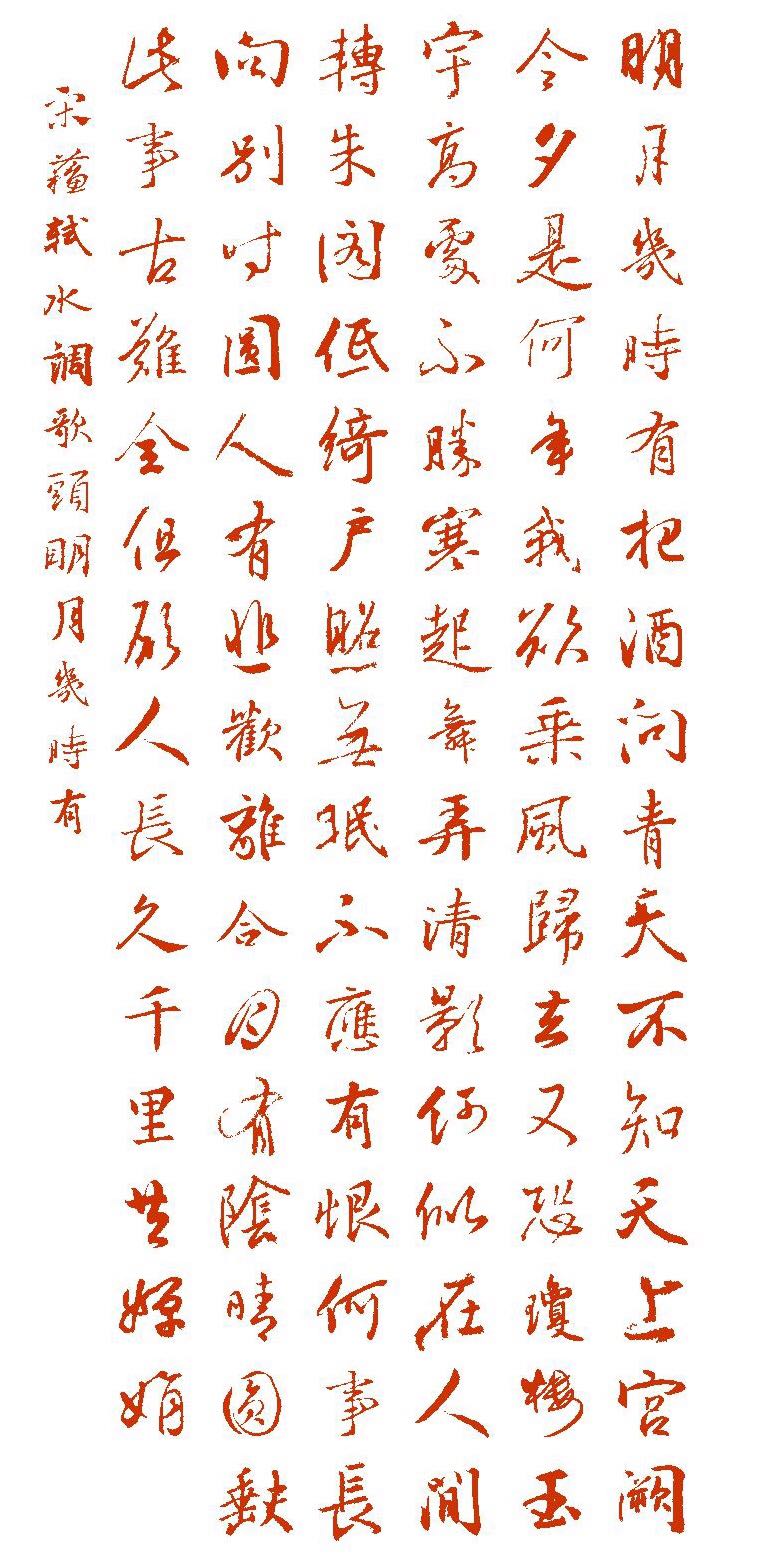 明月幾時有把酒問青天不知天上宮闕
今夕是何年我欲乘風歸去又恐瓊樓玉
宇高處不勝寒起舞弄清影何似在人間
轉朱閣低綺户照無眠不應有恨何事長
向別時圓人有悲歡離合月有陰晴圓缺
此事古難全但願人長久千里共嬋娟
宋蘇軾水調歌頭明月幾時有